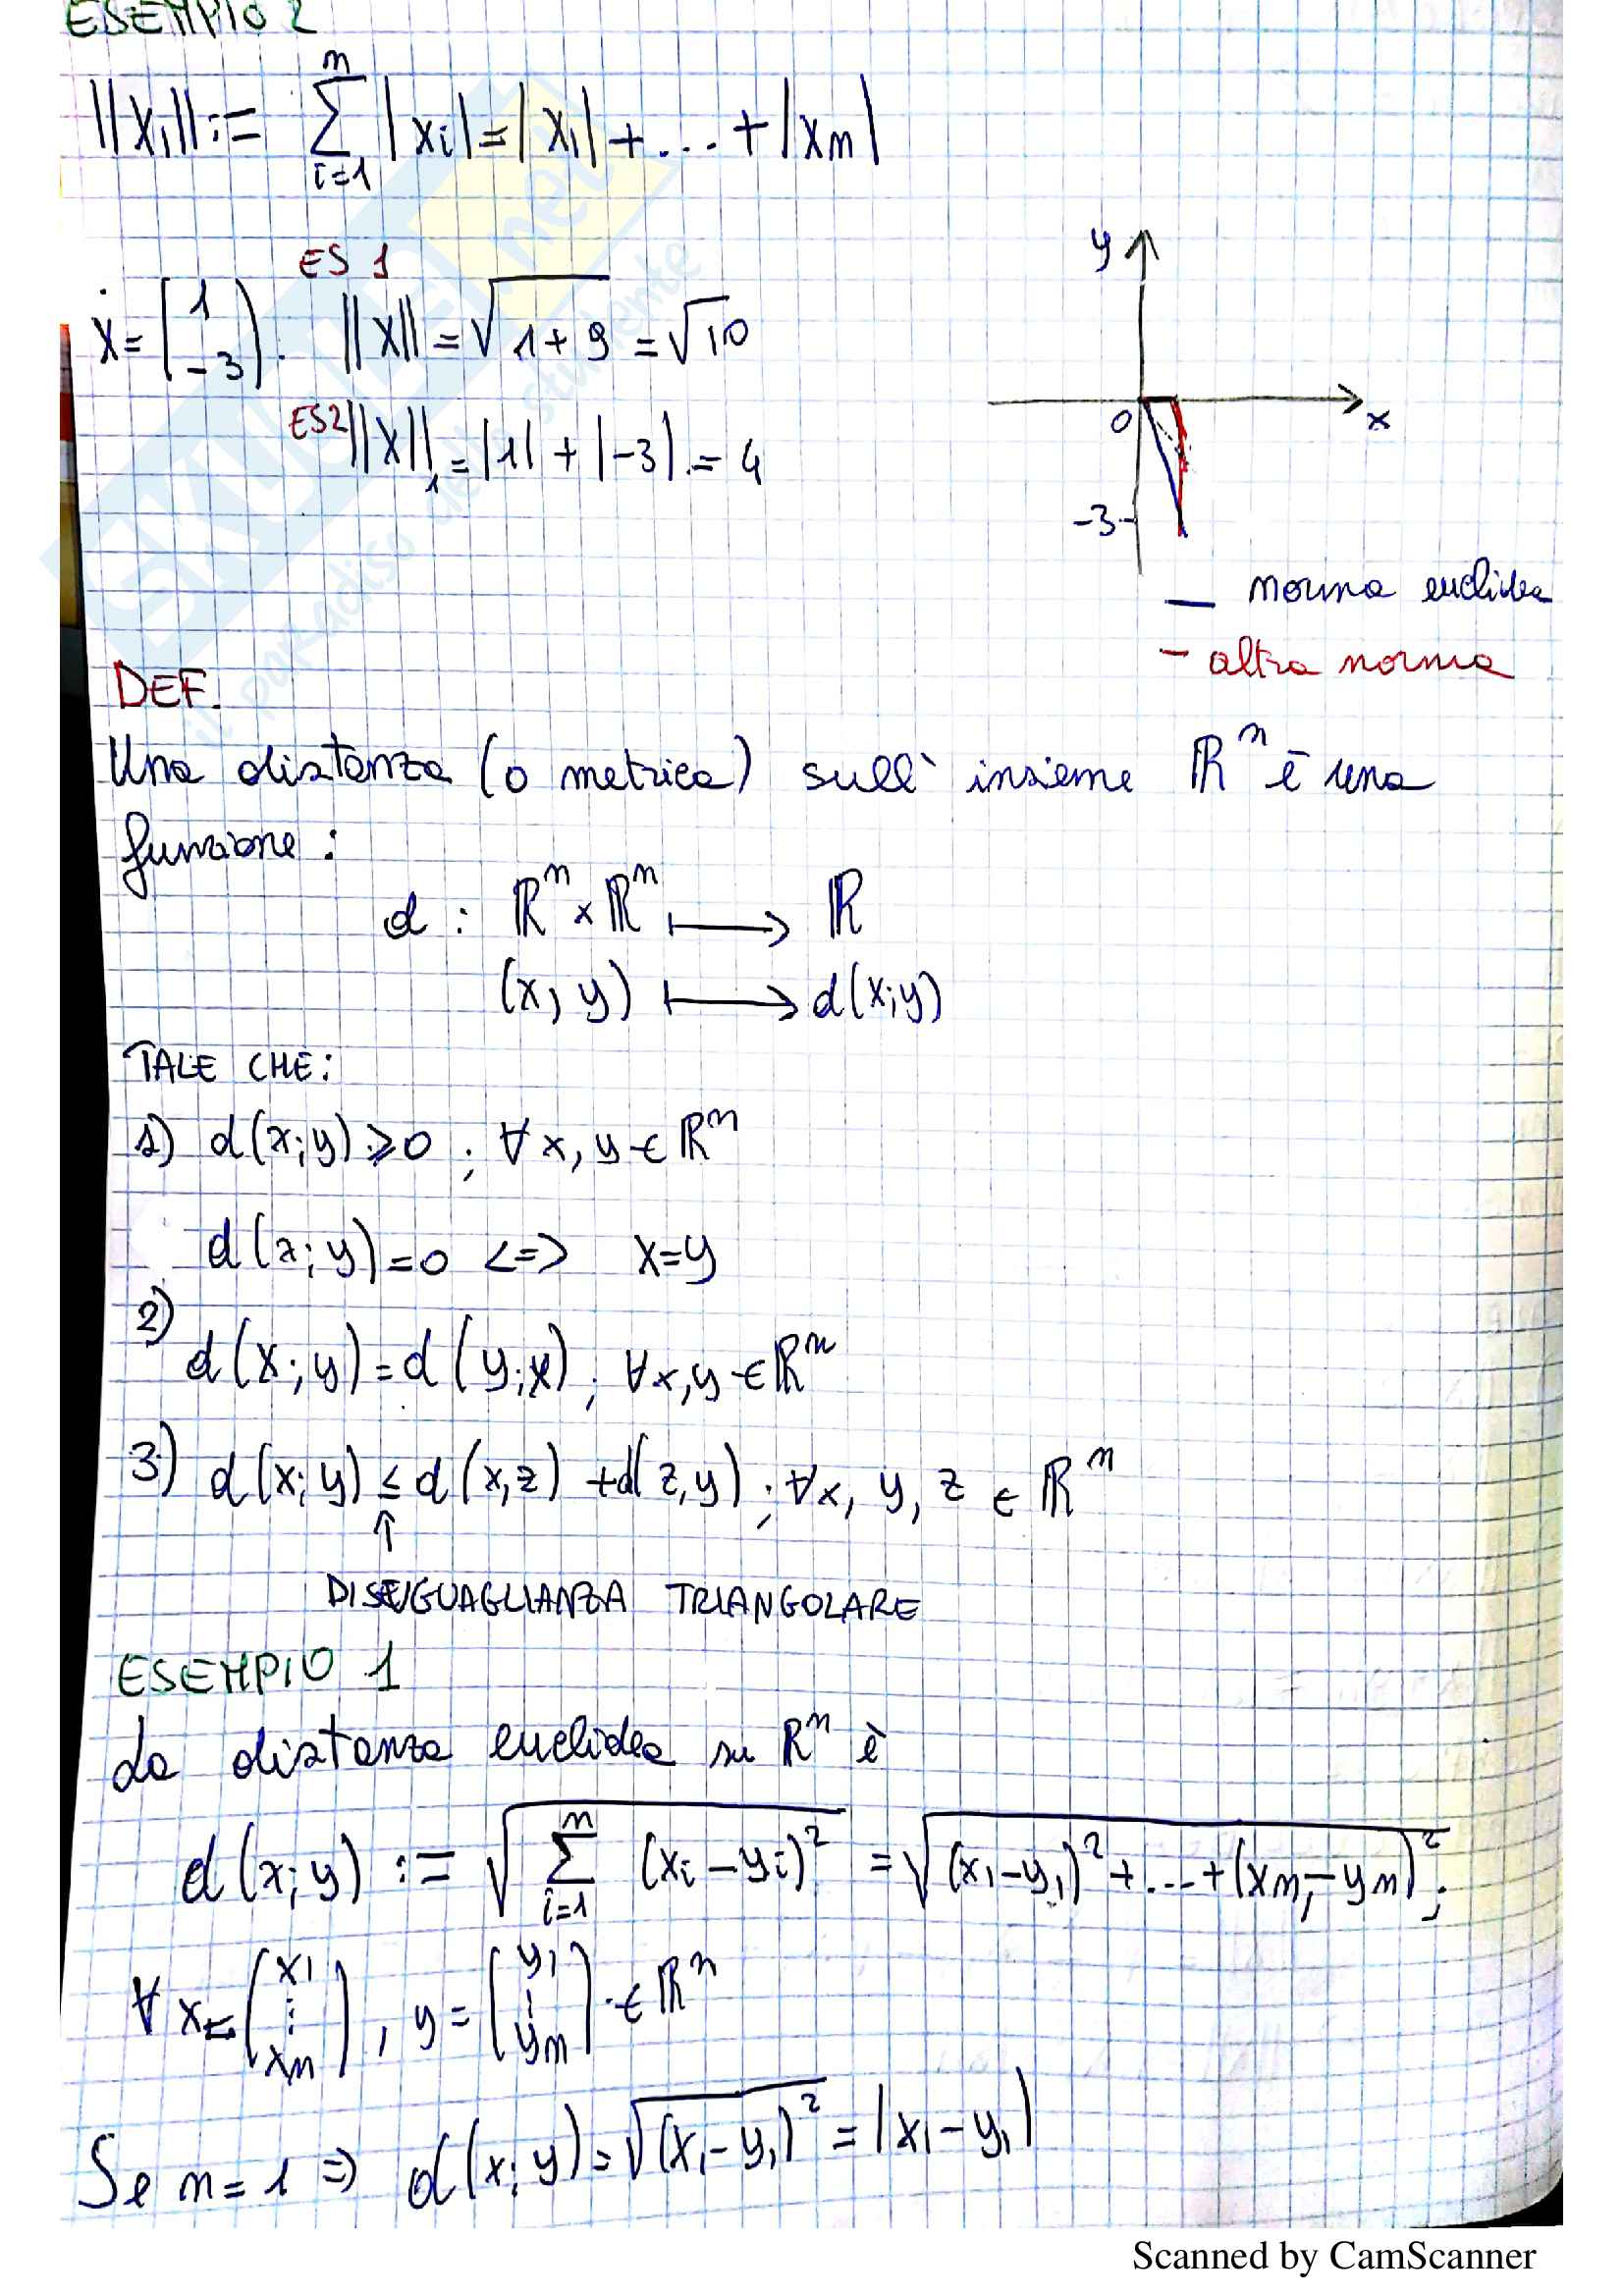 ESEMPIO 2
||x₁|| := ∑ᵢ₌₁ⁿ |xi| = |x₁| + ... + |xn|
ES 1
x = (1 -3). ||x|| = √1+9 = √10
ES2 ||x||₁ = |1| + |-3| = 4
y
0
x
-3
norma euclidea
altra norma
DEF.
Una distanza (o metrica) sull' insieme ℝⁿ è una
funzione:
d : ℝⁿ × ℝⁿ ⟼ ℝ
(x, y) ⟼ d(x;y)
TALE CHE:
1) d(x;y) ⩾ 0 ; ∀ x, y ∈ ℝⁿ
d(x;y) = 0 <=> x=y
2)
d(x;y) = d(y;x) ; ∀x,y ∈ ℝⁿ
3) d(x;y) ≤ d(x,z) + d(z,y) ; ∀x, y, z ∈ ℝⁿ
↑
DISEGUAGLIANZA TRIANGOLARE
ESEMPIO 1
La distanza euclidea su ℝⁿ è
d(x;y) := √∑ᵢ₌₁ⁿ (xi - yi)² = √(x₁-y₁)² + ... + (xn - yn)² ;
∀ x = (x₁ ⋮ xn), y = (y₁ ⋮ yn) ∈ ℝⁿ
Se n = 1 => d(x;y) = √(x₁-y₁)² = |x₁-y₁|
SKUOLA.net
il paradiso dello studente
Scanned by CamScanner